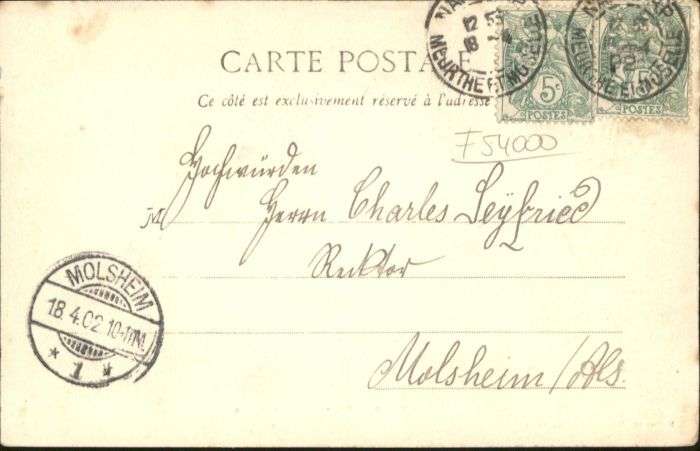 12
18
MEURTHE ET MOSELLE
MEURTHE ET MOSELLE
5c
5
POSTES
POSTES
CARTE POSTALE
Ce côté est exclusivement réservé à l'adresse
F54000
Hochwürden
Herrn Charles Seyfried
Rektor
MOLSHEIM
18.4.02 10-11N.
* 1 *
Molsheim/Als.